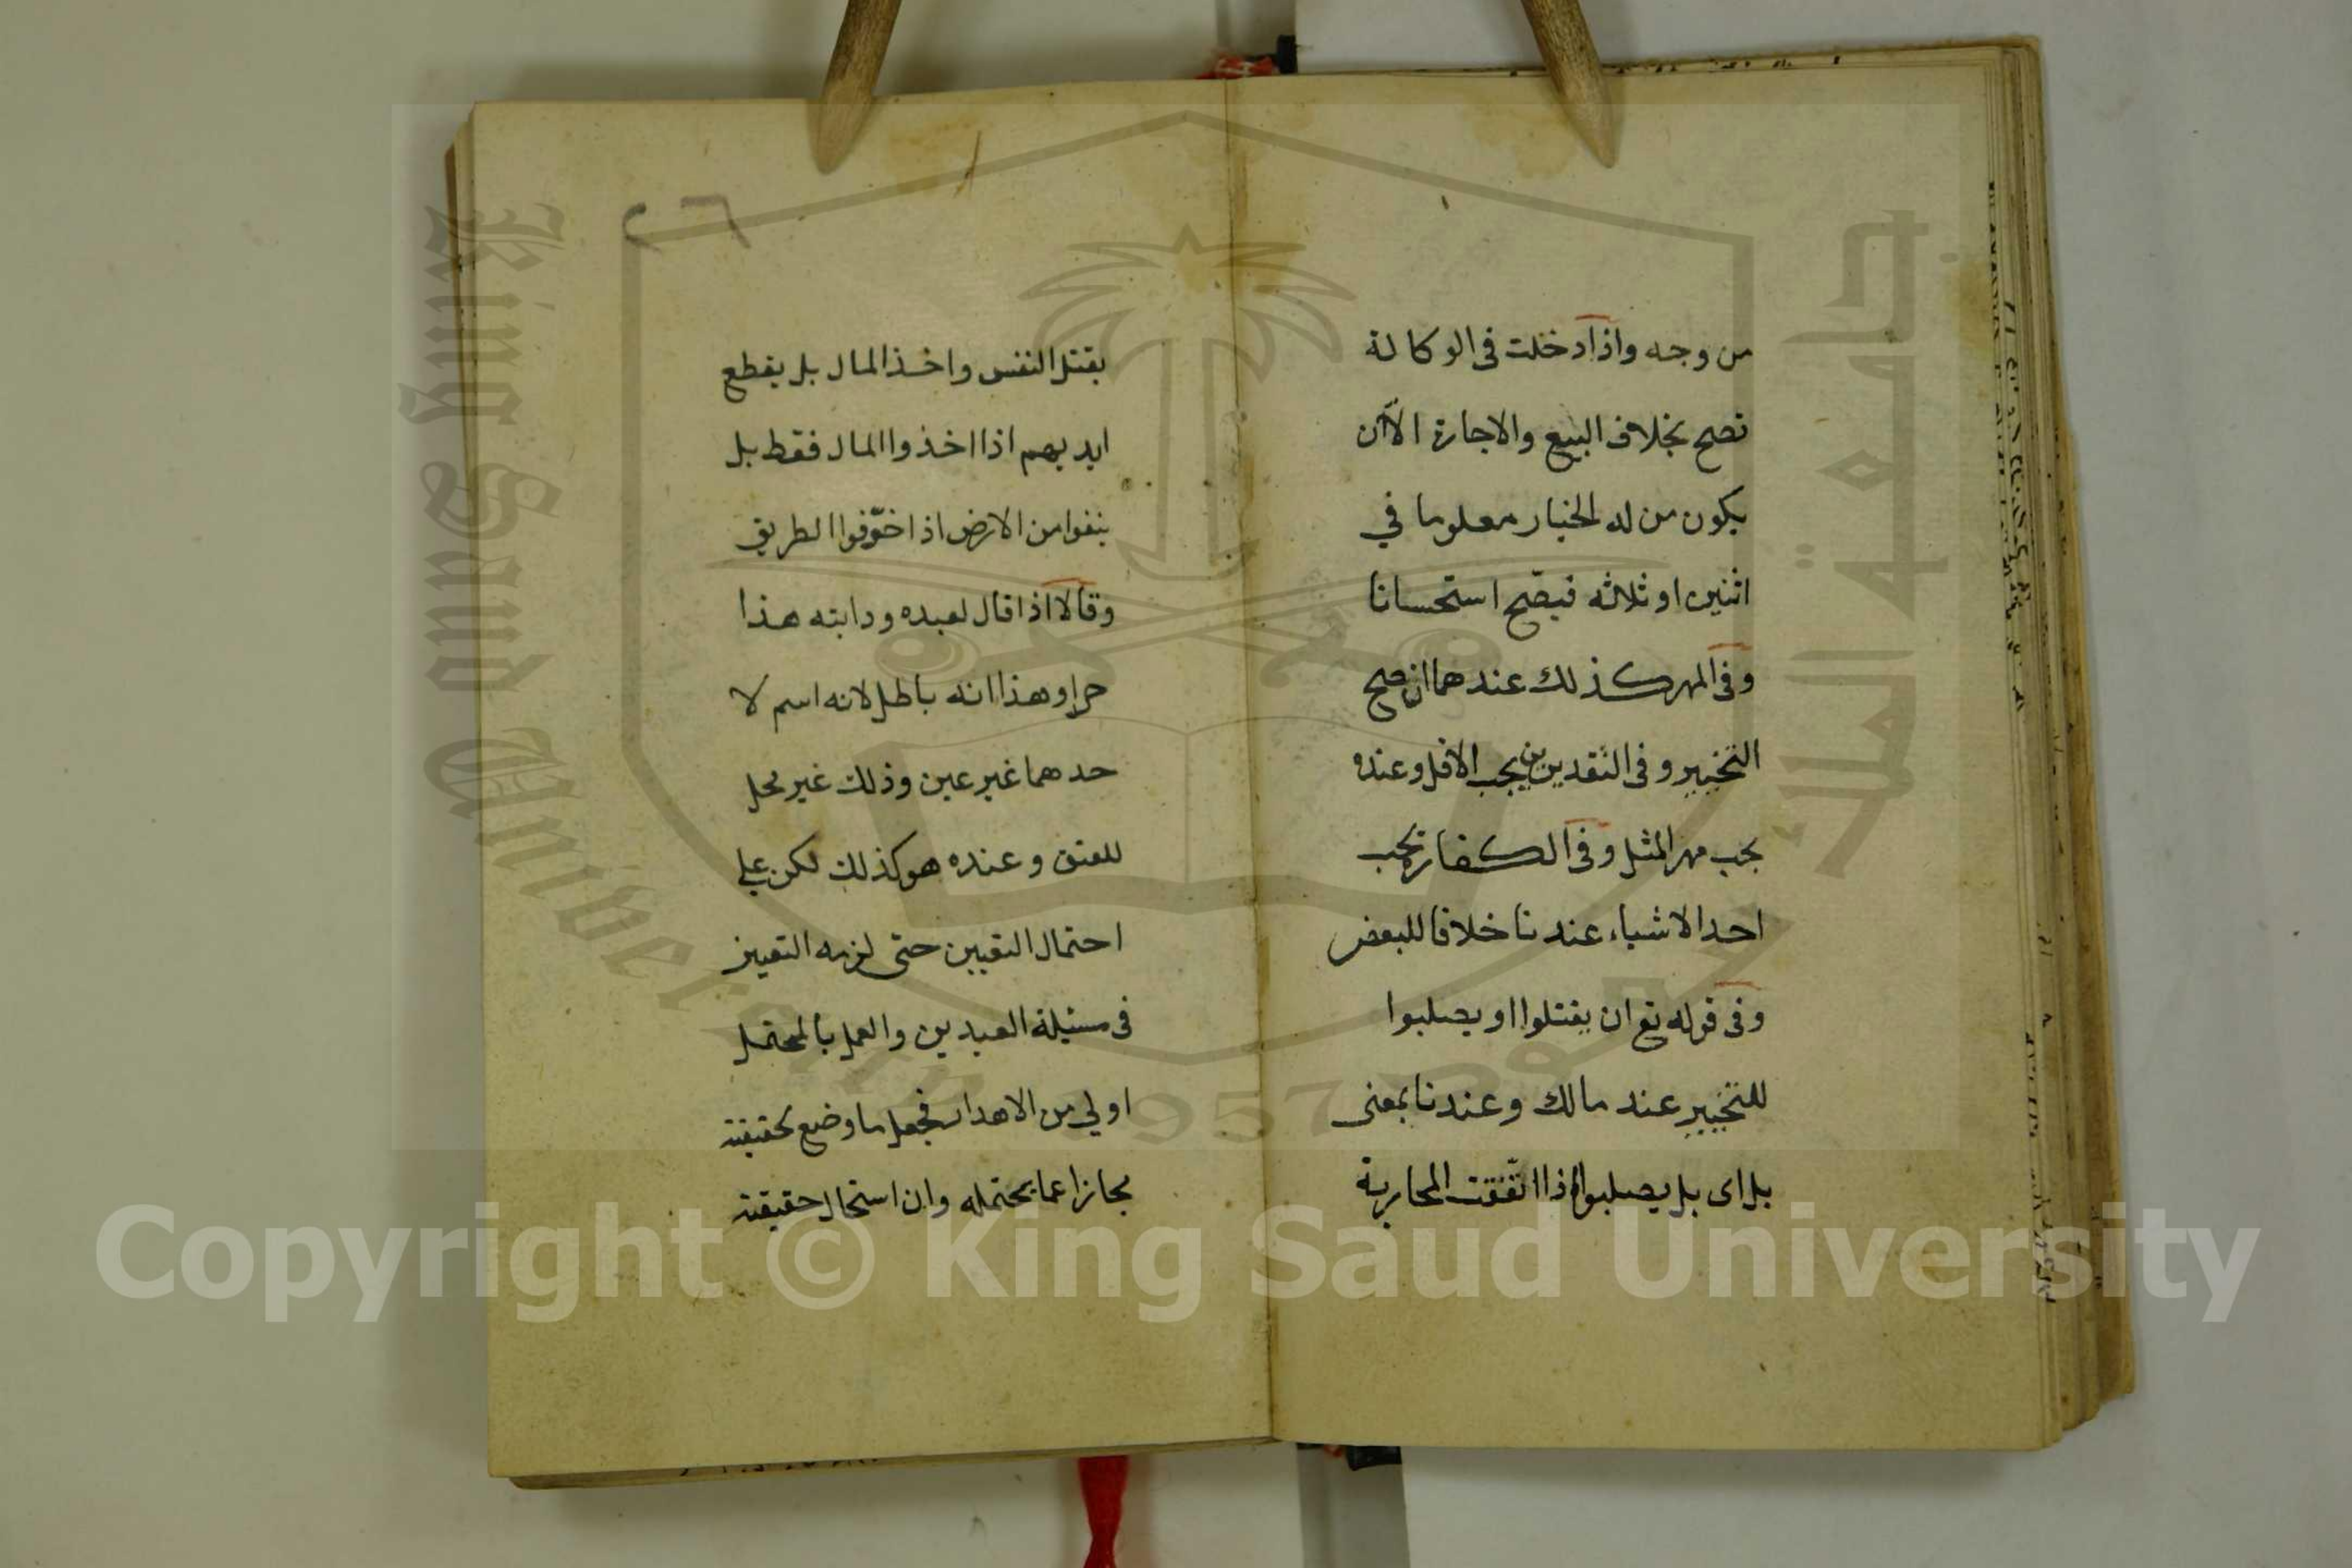 من وجه واذا دخلت في الوكالة
تصح بخلاف البيع والاجارة الاّ ان
يكون من له الخيار معلوما في
اثنين او ثلاثه فيصّح استحسانا
وفي المهر كذلك عندهما ان صح
التخيير وفي النقدين يجب الاقل وعنده
يجب مهر المثل وفي الكفارة يجب
احد الاشياء عندنا خلافا للبعض
وفي قوله تع ان يقتلوا او يصلبوا
للتخيير عند مالك وعندنا بمعنى
بل اى بل يصلبوا اذا اتّفقت المحاربة
٢٦
بقتل النفس واخذ المال بل يقطع
ايديهم اذا اخذوا المال فقط بل
ينفوا من الارض اذا خوّفوا الطريق
وقالا اذا قال لعبده ودابته هذا
حر او هذا انه باطل لانه اسم لا
حدهما غير عين وذلك غير محل
للعتق وعنده هو كذلك لكن على
احتمال التعيين حتى لزمه التعيين
في مسئلة العبدين والعمل بالمحتمل
اولى من الاهدار فجعل ما وضع لحقيقته
مجازا عما يحتمله وان استحال حقيقته
King Saud University
جامعة الملك سعود
1957
Copyright © King Saud University